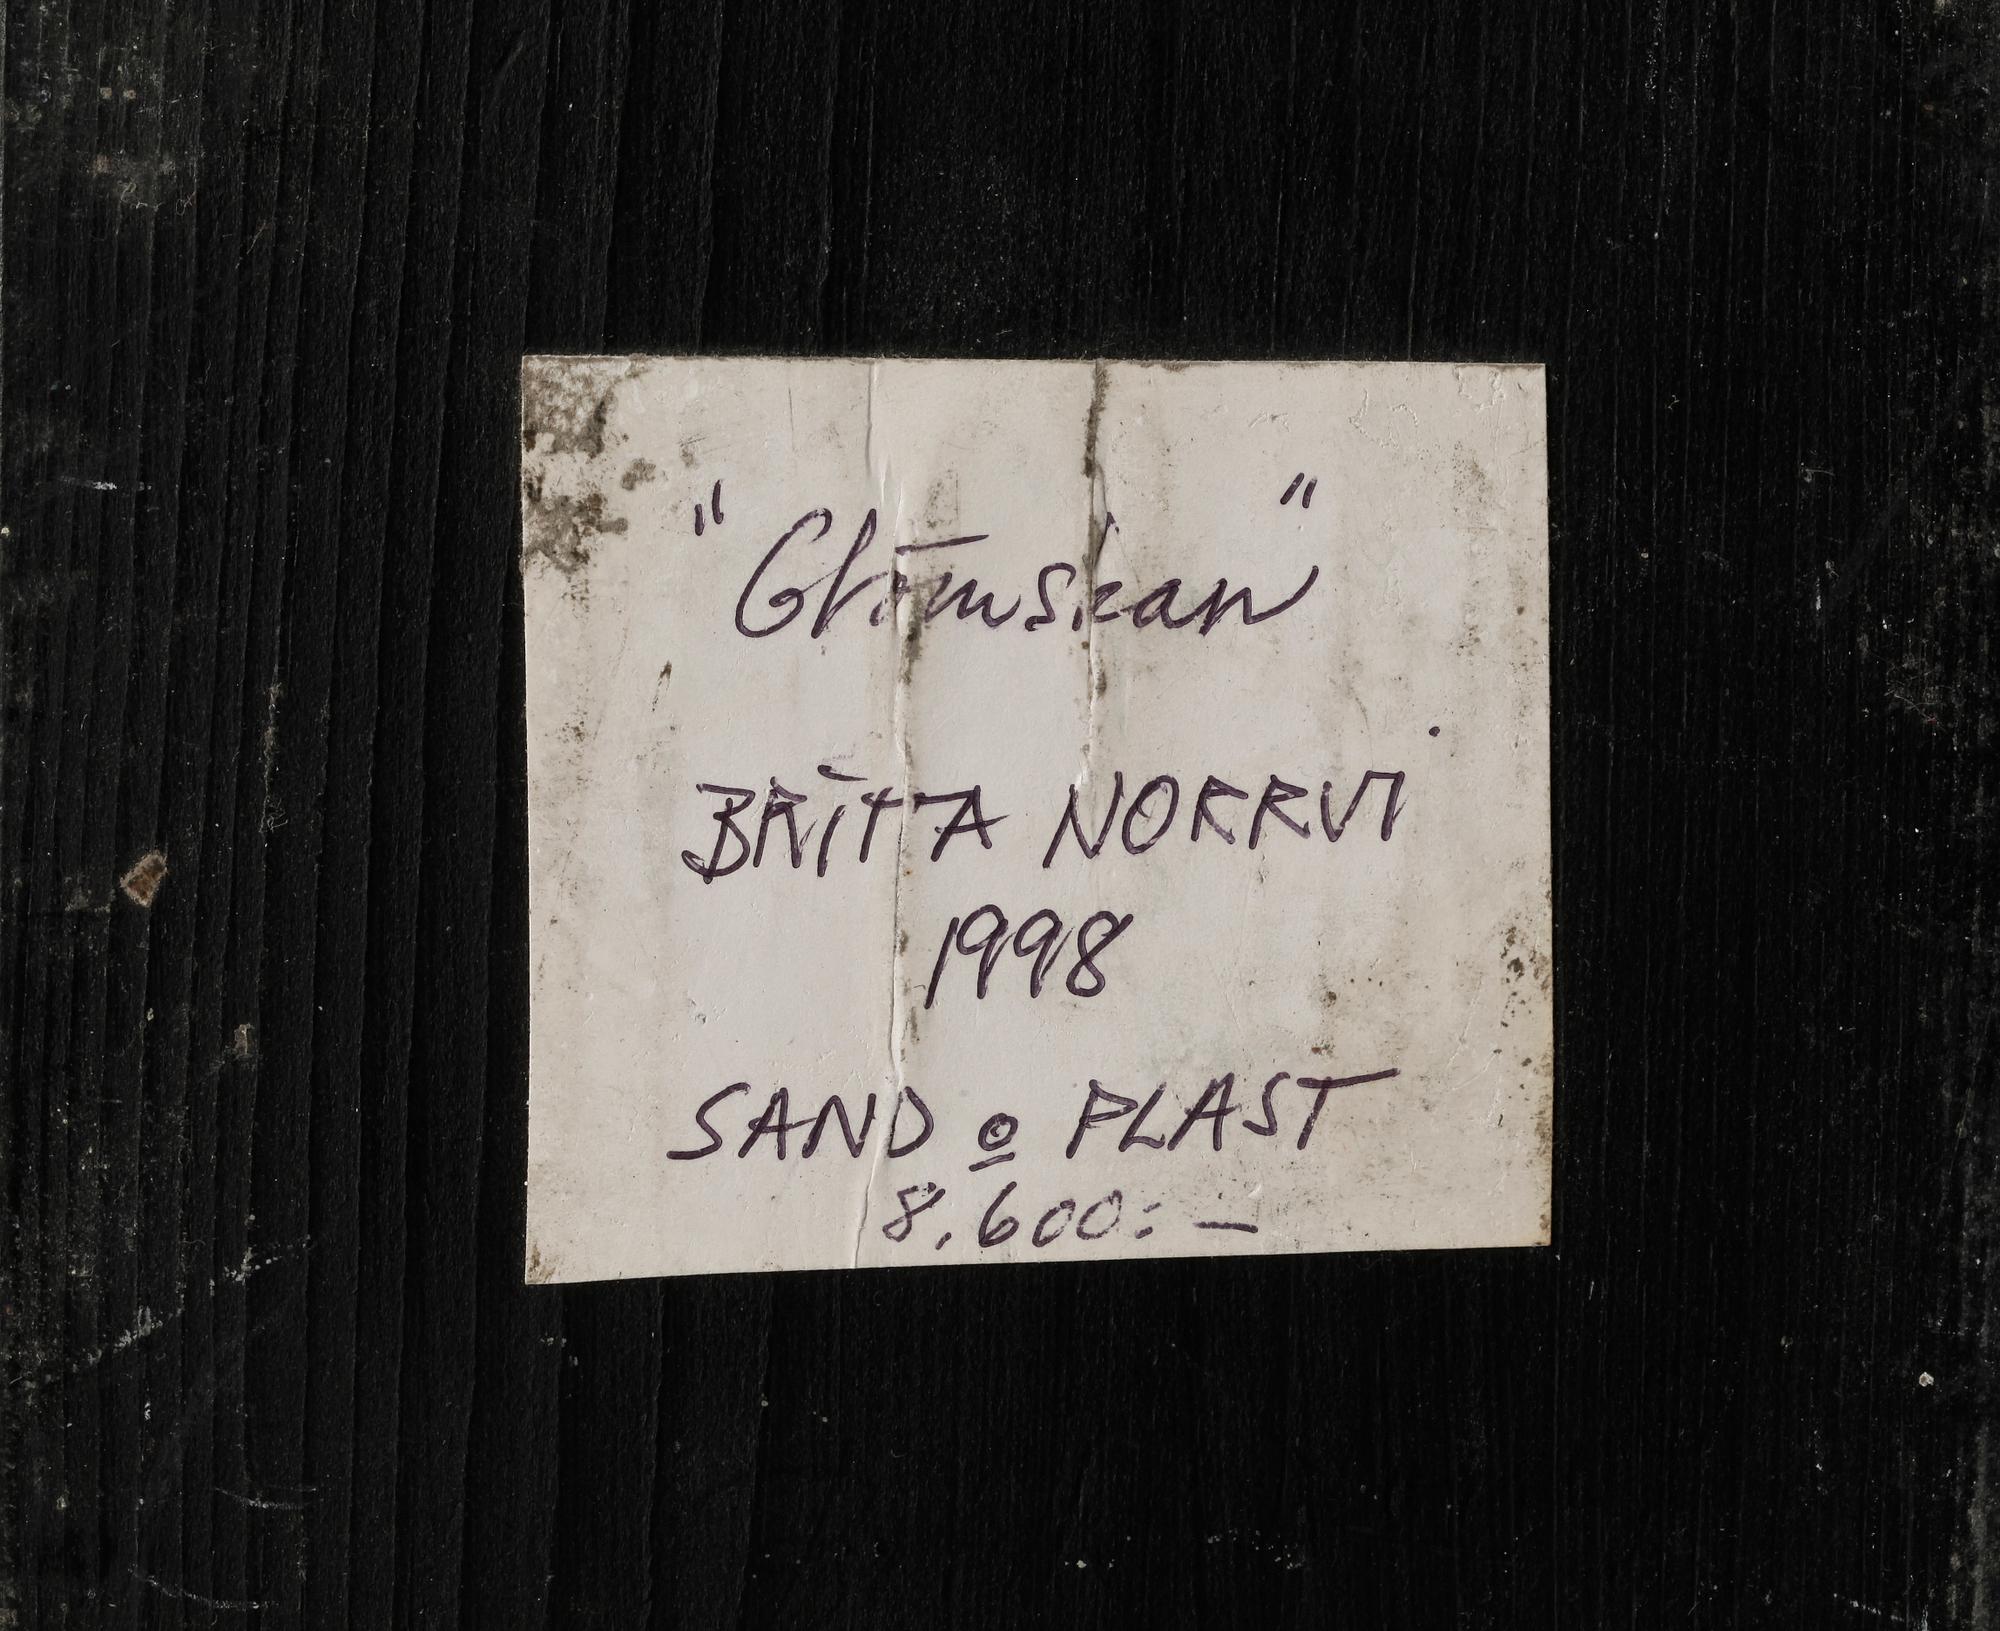 "Glömskan"
BRITTA NORRVI
1998
SAND o PLAST
8,600:—